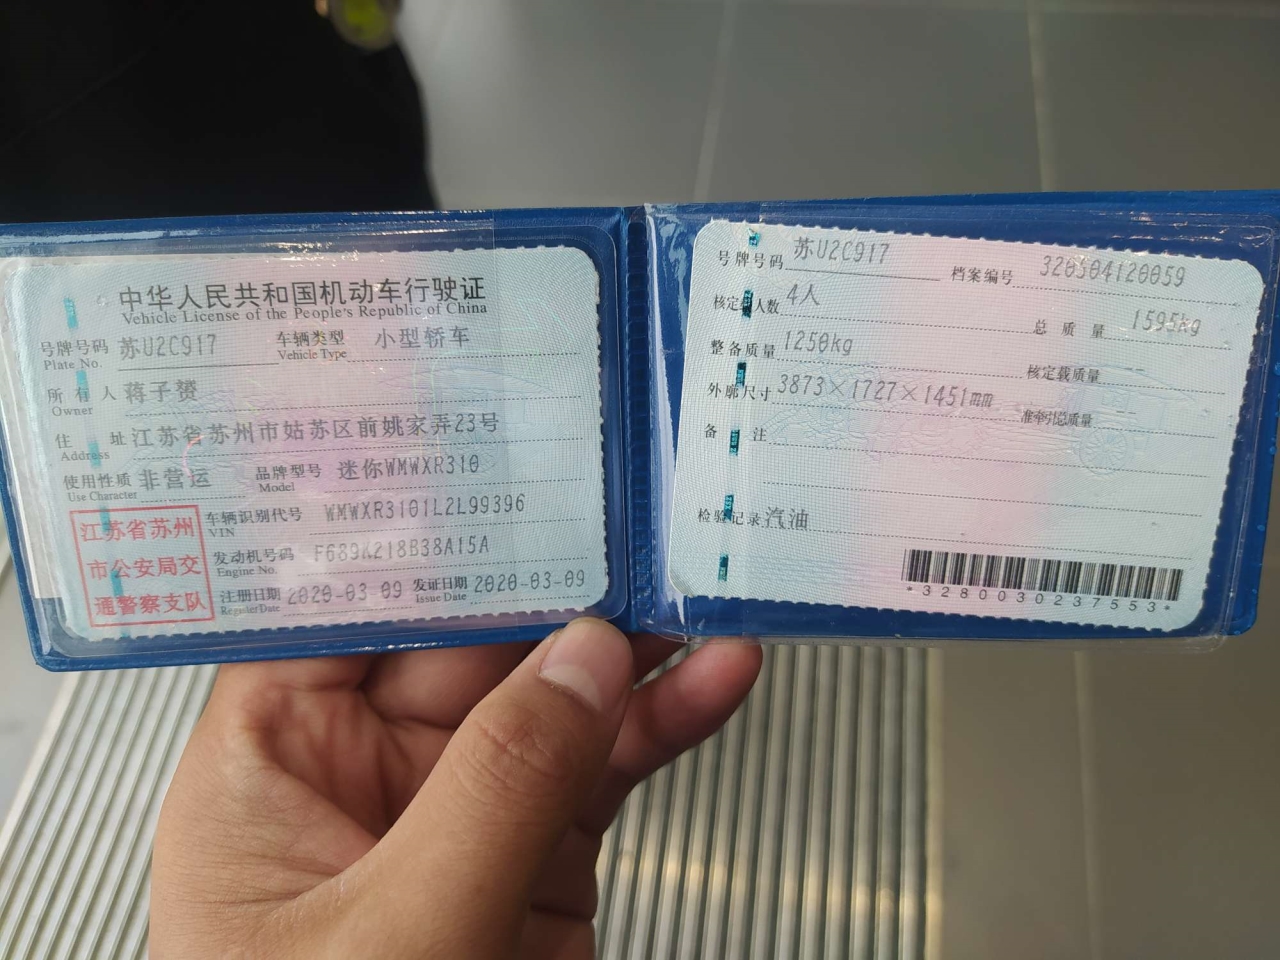 中华人民共和国机动车行驶证
Vehicle License of the People's Republic of China
号牌号码 苏U2C917 车辆类型 小型轿车
Plate No. Vehicle Type
所有人 蒋子赟
Owner
住址 江苏省苏州市姑苏区前姚家弄23号
Address
使用性质 非营运 品牌型号 迷你WMWXR310
Use Character Model
车辆识别代号 WMWXR3101L2L99396
VIN
发动机号码 F689K218B38A15A
Engine No.
注册日期 2020-03-09 发证日期 2020-03-09
Register Date Issue Date
江苏省苏州
市公安局交
通警察支队
号牌号码 苏U2C917 档案编号 320504120059
核定载人数 4人 总质量 1595kg
整备质量 1250kg 核定载质量 --
外廓尺寸 3873×1727×1451mm 准牵引总质量 --
备注
检验记录 汽油
*3280030237553*